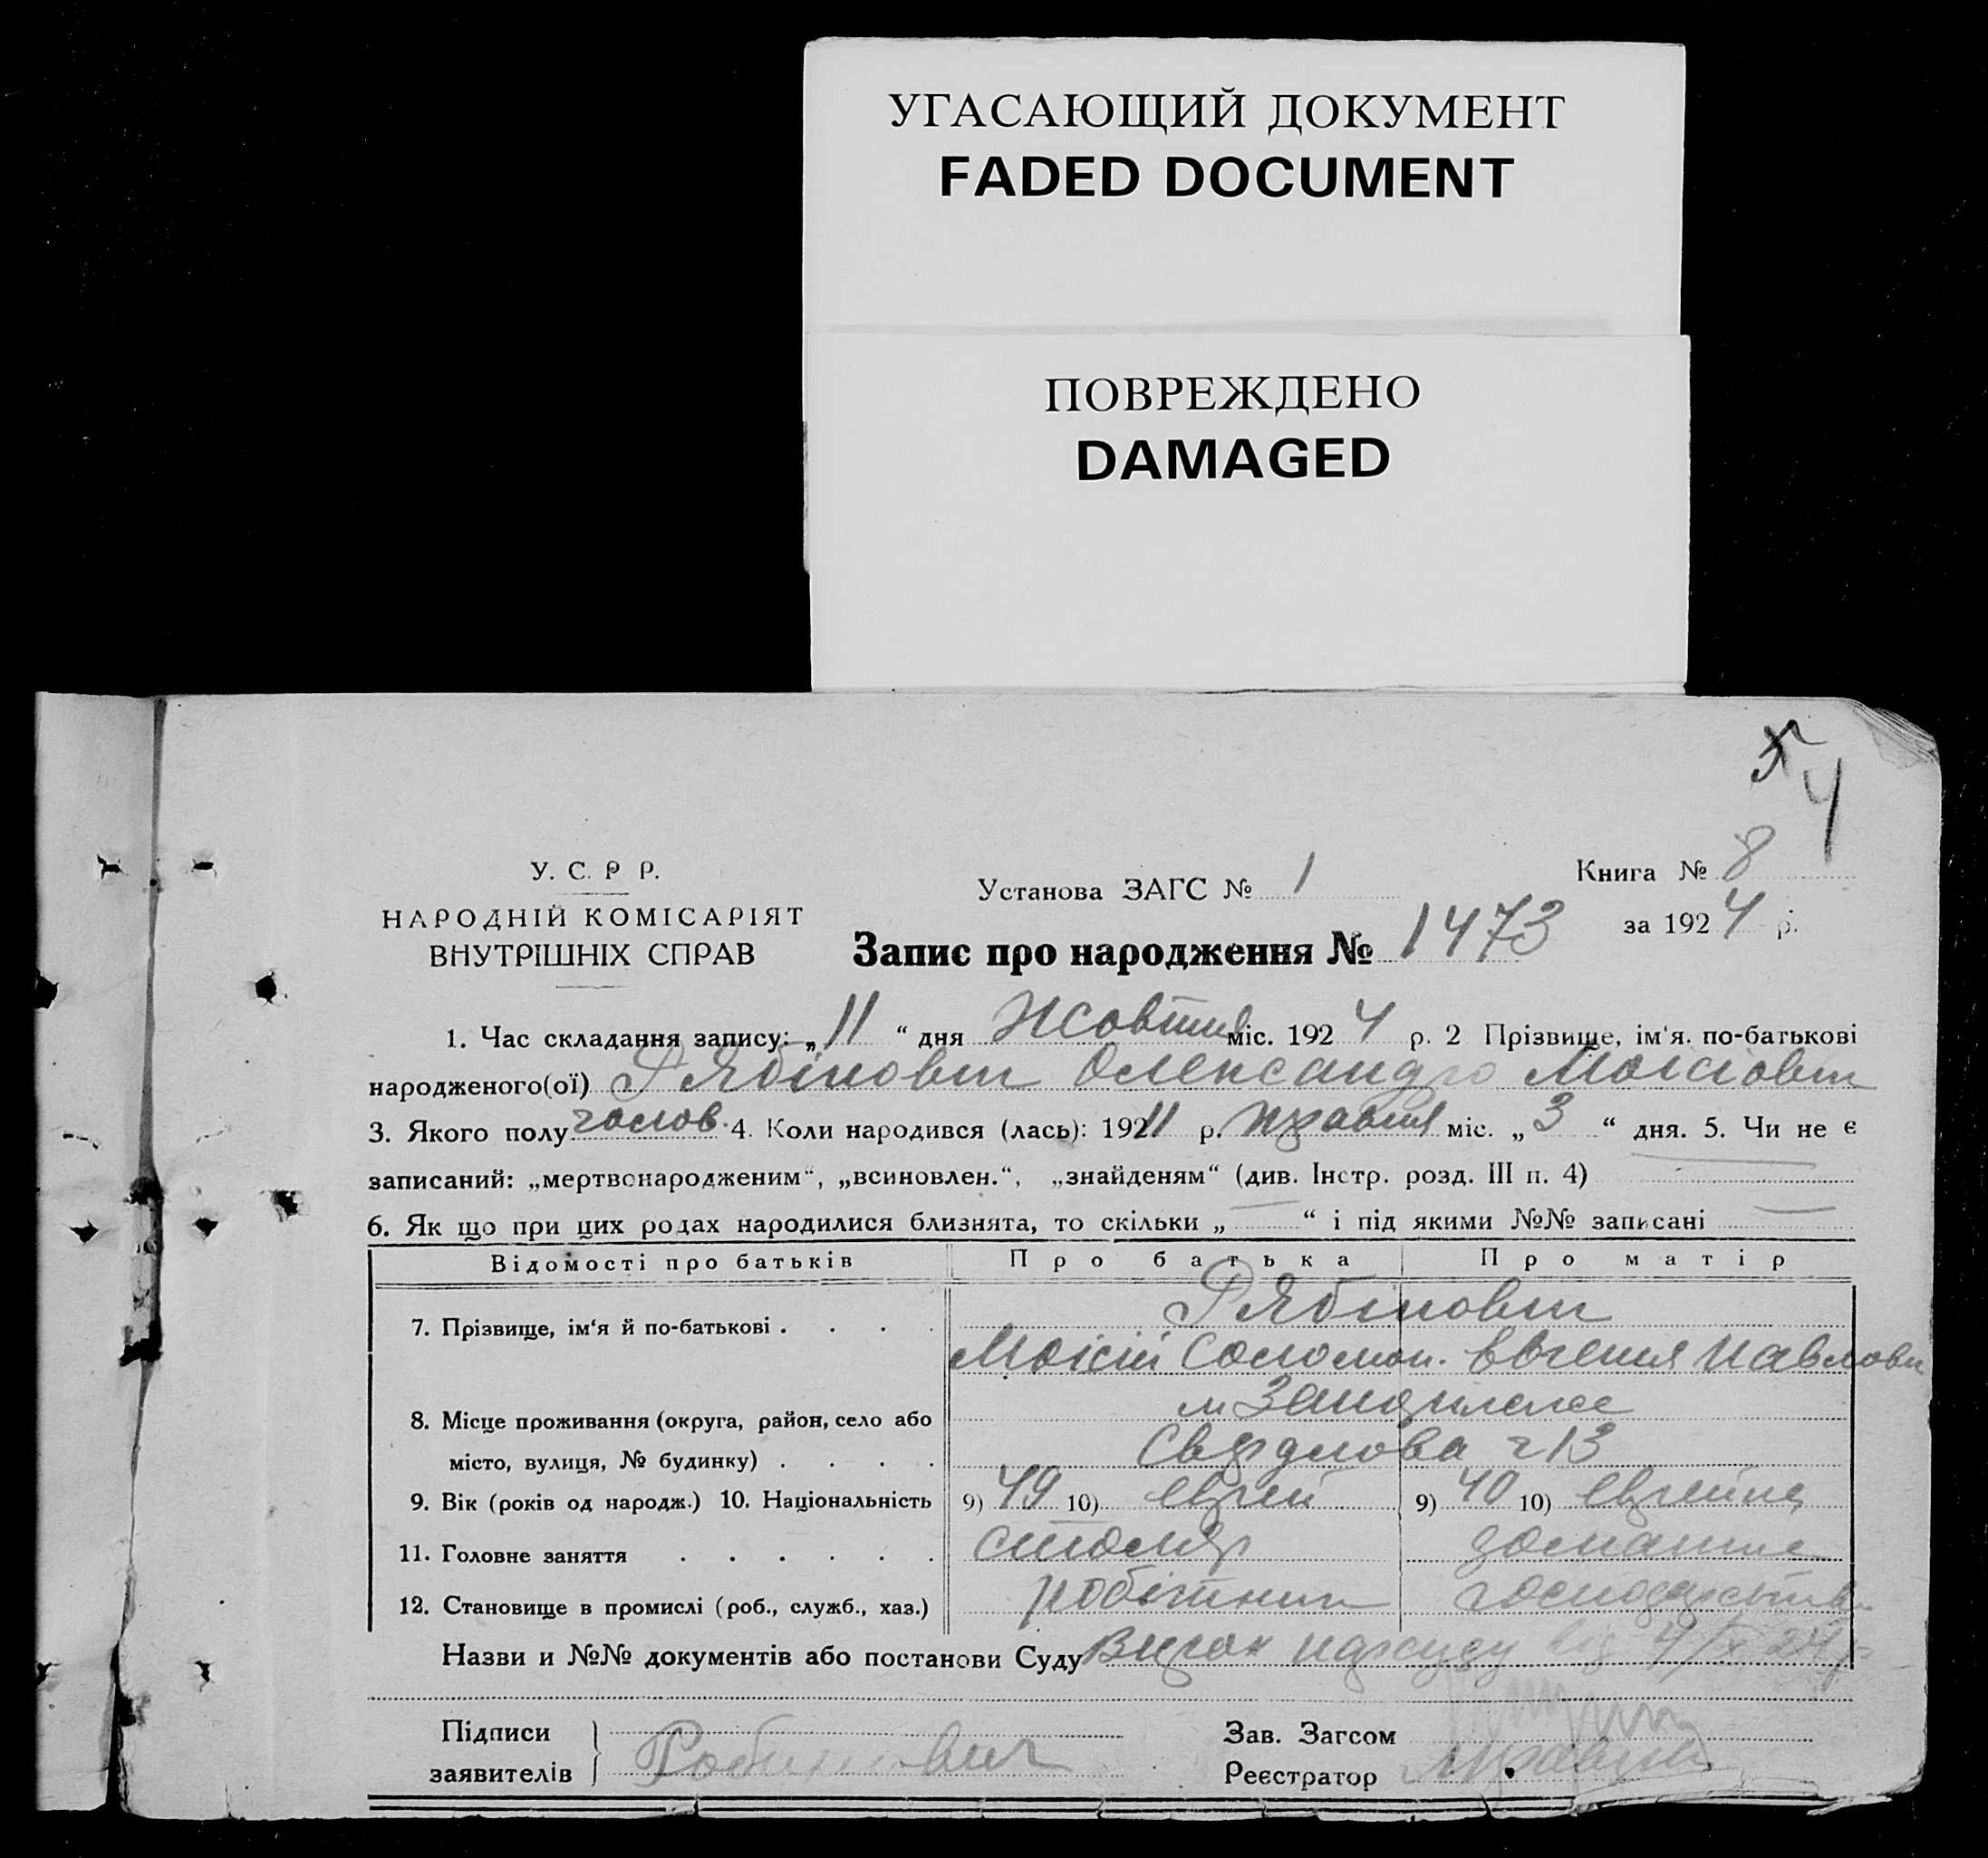 УГАСАЮЩИЙ ДОКУМЕНТ
FADED DOCUMENT
ПОВРЕЖДЕНО
DAMAGED
5 4
У. С. Р Р.
НАРОДНІЙ КОМІСАРІЯТ
ВНУТРІШНІХ СПРАВ
Установа ЗАГС № 1
Книга № 8
за 1924 р.
Запис про народження № 1473
1. Час складання запису: „11“ дня Жовтня міс. 1924 р. 2 Прізвище, ім'я. по-батькові
народженого(ої) Рябінович Олександр Мойсіович
3. Якого полу голов. 4. Коли народився (лась): 19211 р. міс. „3“ дня. 5. Чи не є
записаний: „мертвонародженим“, „всиновлен.“, „знайденям“ (див. Інстр. розд. III п. 4)
6. Як що при цих родах народилися близнята, то скільки „ — “ і під якими №№ записані —
Відомості про батьків Про батька Про матір
7. Прізвище, ім'я й по-батькові . . . . Рябінович
Мойсій Соломон. Євгенія Павловн
8. Місце проживання (округа, район, село або м
місто, вулиця, № будинку) . . . . Свердлова ч 13
9. Вік (років од народж.) 10. Національність 9) 49 10) Єврей 9) 40 10) Єврейка
11. Головне заняття . . . . . . столяр домашнє
12. Становище в промислі (роб., служб., хаз.) робітник господарств.
Назви и №№ документів або постанови Суду Витяг нарсуду від 4/X 24 р
Підписи
заявителів
Рабинович
Зав. Загсом
Реєстратор